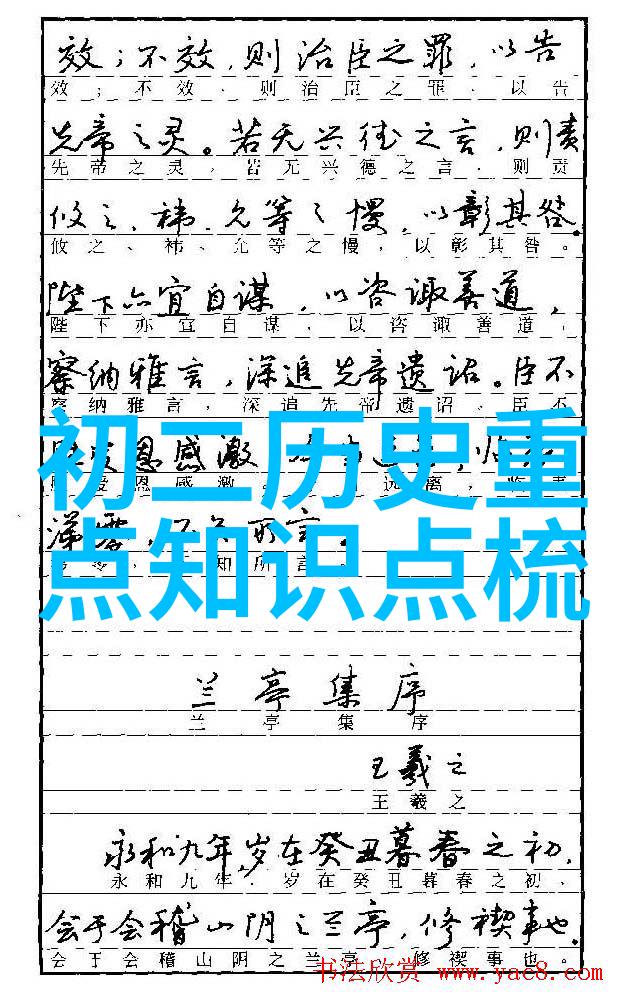 效；不效，则治臣之罪，以告
效；不效、则治臣之罪、以告
先帝之灵。若无兴德之言，则责
先帝之灵，若无兴德之言、则责
攸之、祎、允等之慢，以彰其咎。
攸之、祎、允等之慢，以彰其咎。
陛下亦宜自谋，以咨诹善道，
陛下亦宜自谋，以咨诹善道，
察纳雅言，深追先帝遗诏。臣不
察纳雅言，深追先帝遗诏、臣不
恩感激
恩感激
初二历史重
点知识点梳
兰亭集序
兰亭集序
王羲之
王羲之
永和九年，岁在癸丑暮春之初，
永和九年、岁在癸丑暮春之初、
会于会稽山阴之兰亭，修禊事也。
会于会稽山阴之兰亭，修禊事也。
书法欣赏 www.yac8.com